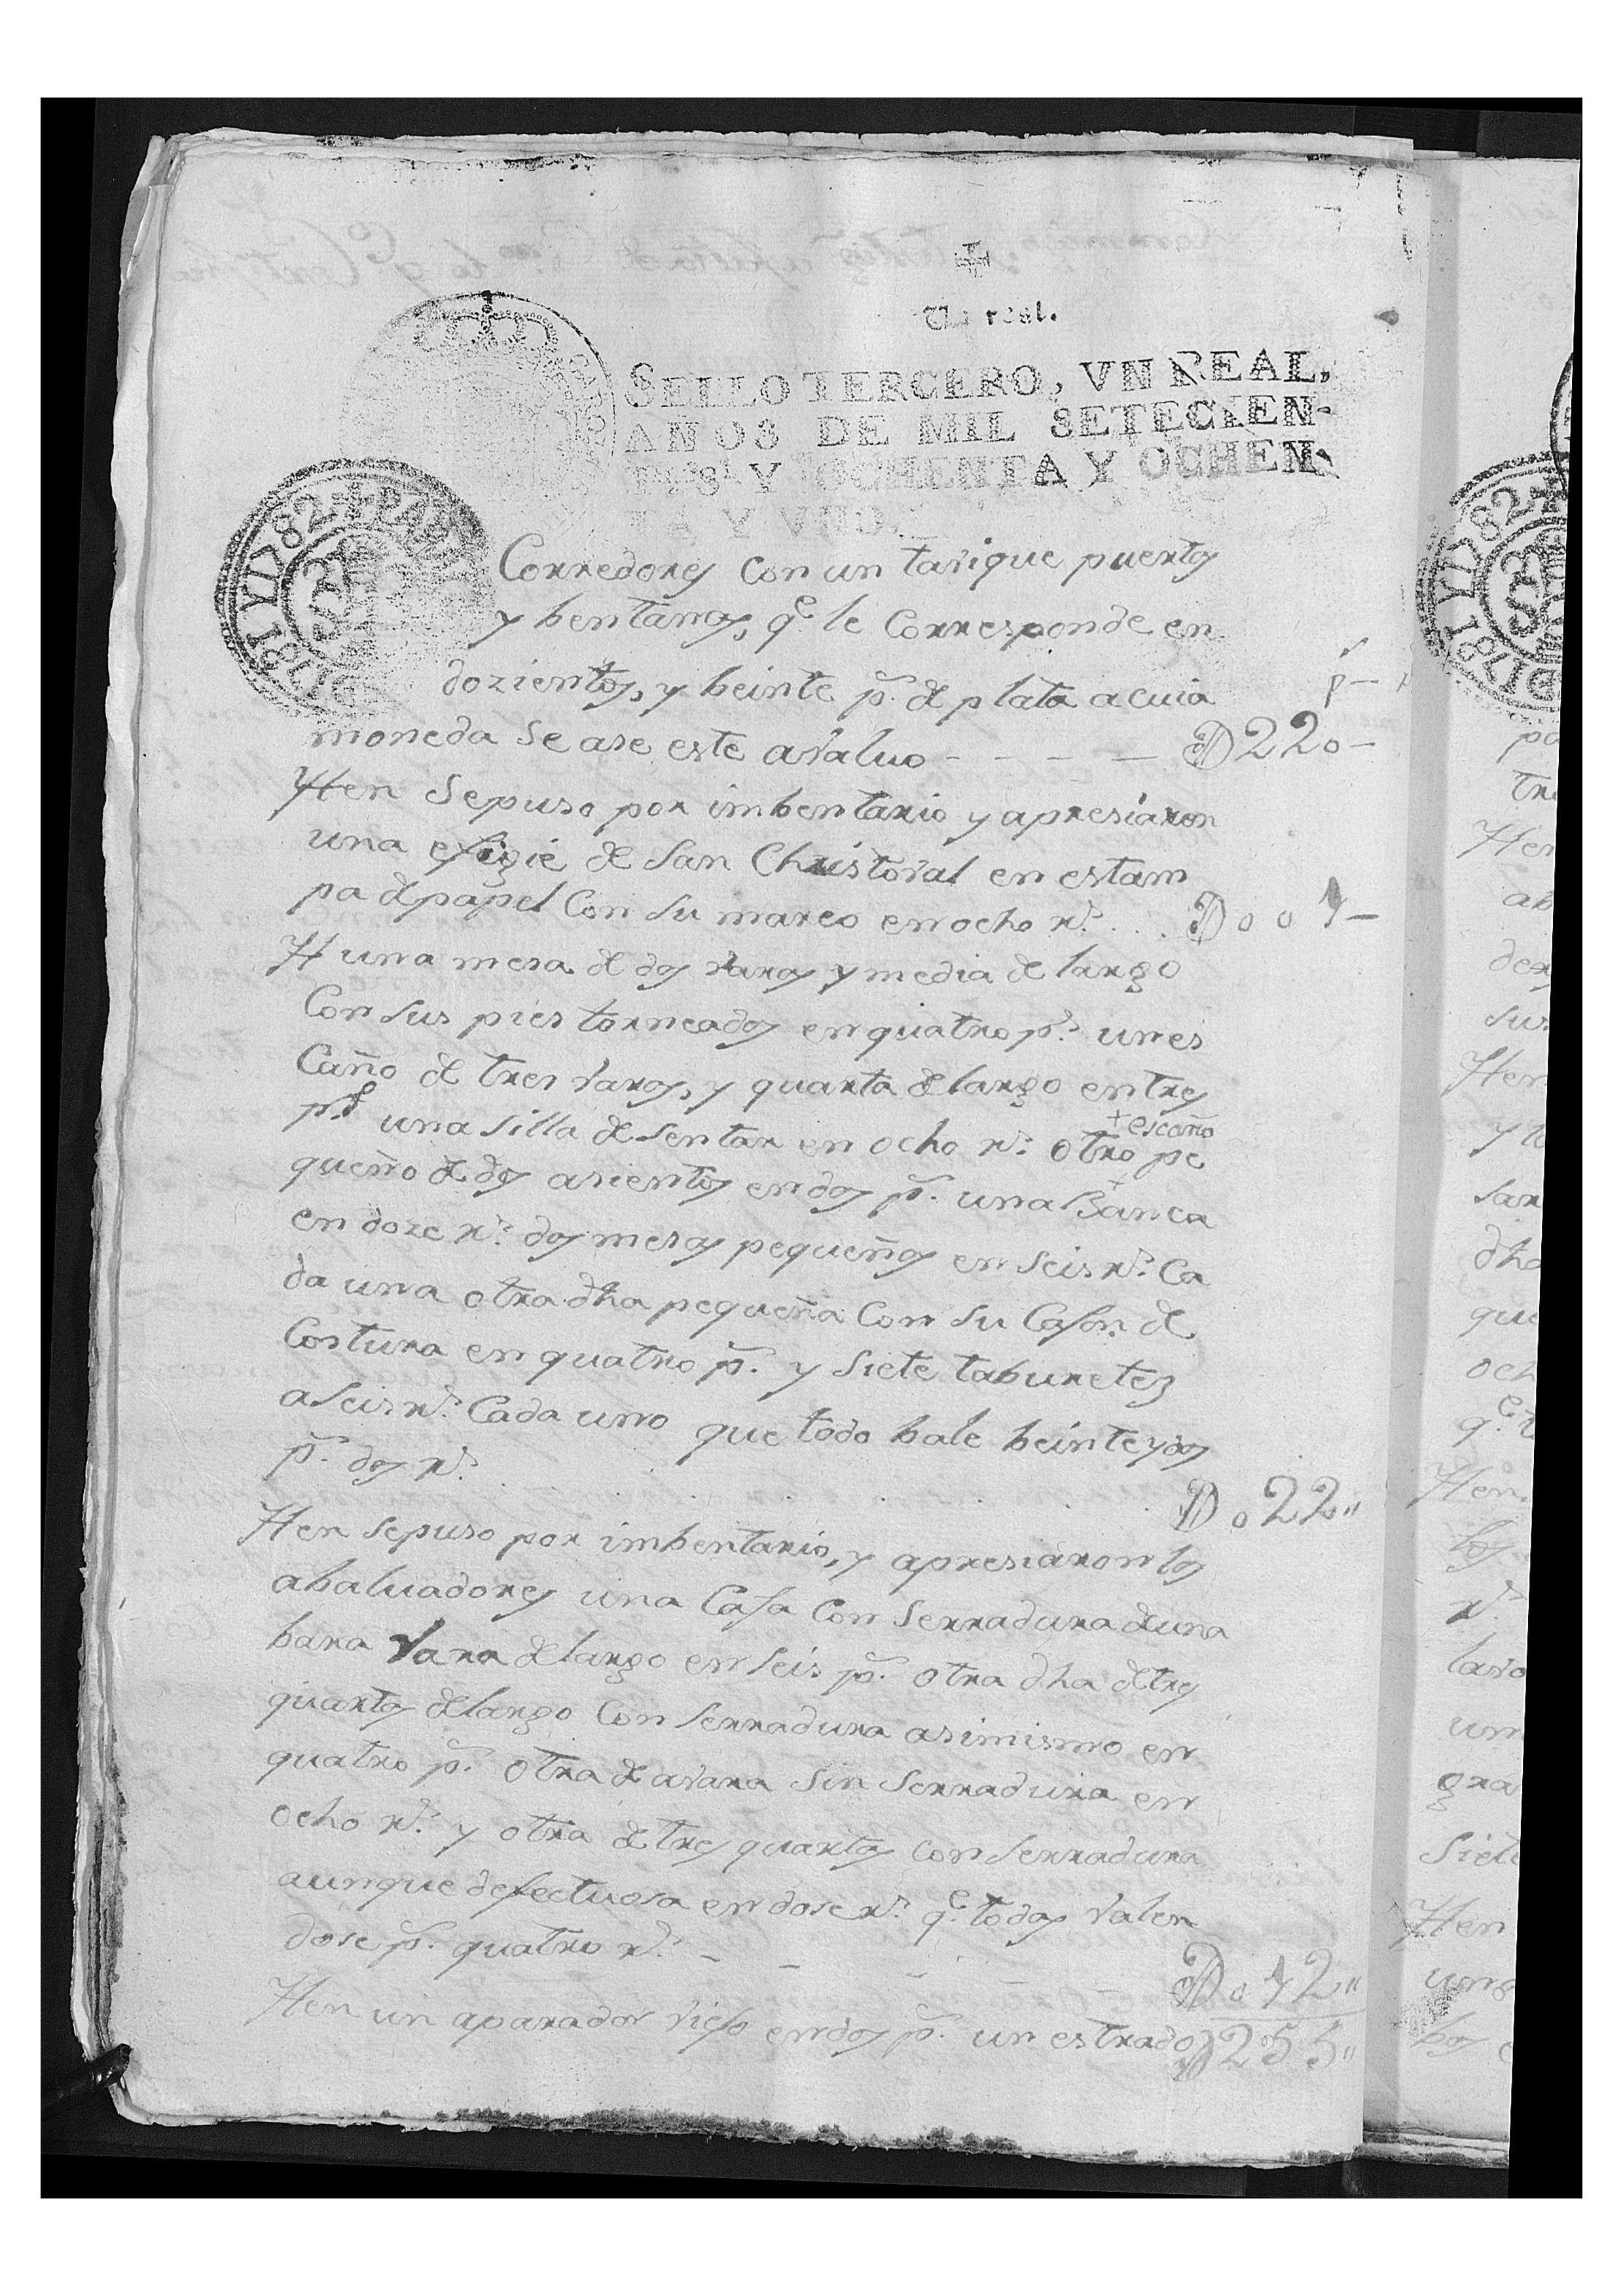 Un real.
SELLO TERCERO, VN REAL,
AÑOS DE MIL SETECIEN-
TOS Y OCHENTA Y OCHEN-
TA Y VNO.
1781 Y 1782
Corredores con un tavique puertas
y bentanas, qe. le Corresponde en
dozientos, y beinte ps. de plata a cuia
moneda se ase este avaluo - - - - D220-
Yten se puso por imbentario y apresiaron
una efigie de San Christoval en estam
pa de papel Con su marco en ocho rs. . . . D001-
Yt una mesa de dos varas y media de largo
Con sus pies torneados en quatro ps. un es
Caño de tres varas, y quarta de largo en tres
ps. una silla de sentar en ocho rs. otro +escaño pe
queño de dos asientos en dos ps. una Banca
en doze rs. dos mesas pequeñas en seis rs. Ca
da una otra dha pequeña Con su Caxon de
Costura en quatro ps. y siete taburetez
a seis rs. Cada uno que todo bale beinte y dos
ps. dos rs. . . . . . . . D022"
Yten se puso por imbentario, y apresiaron los
abaluadores una Caxa Con serradura de una
bara vara de largo en seis ps. otra dha de tres
quartas de largo Con serradura asimismo en
quatro ps. otra de avara sin serradura en
ocho rs. y otra de tres quartas con serradura
aunque defectuosa en dose rs. qe. todas valen
dose ps. quatro rs. - - - - - - D012"
Yten un aparador viejo en dos ps. un estrado D255"